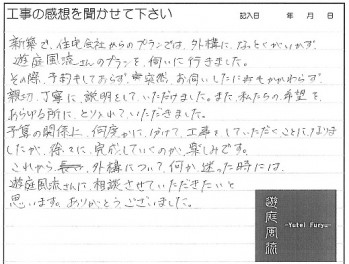 工事の感想を聞かせて下さい
記入日 年 月 日
新築で、住宅会社からのプランでは、外構に、なっとくがいかず、
遊庭風流さんのプランを、伺いに行きました。
その際、予約もしておらず、突然、お伺いしたにもかかわらず、
親切、丁寧に、説明をして、いただけました。また、私たちの希望を、
あらゆる所に、とり入れて、いただきました。
予算の関係に、何度かに、分けて、工事をしていただくことになりま
したが、徐々に、完成していくのが、楽しみです。
これから、外構について、何か迷った時には、
遊庭風流さんに、相談させていただきたいと
思います。ありがとうございました。
遊庭風流
-Yutei Furyu-